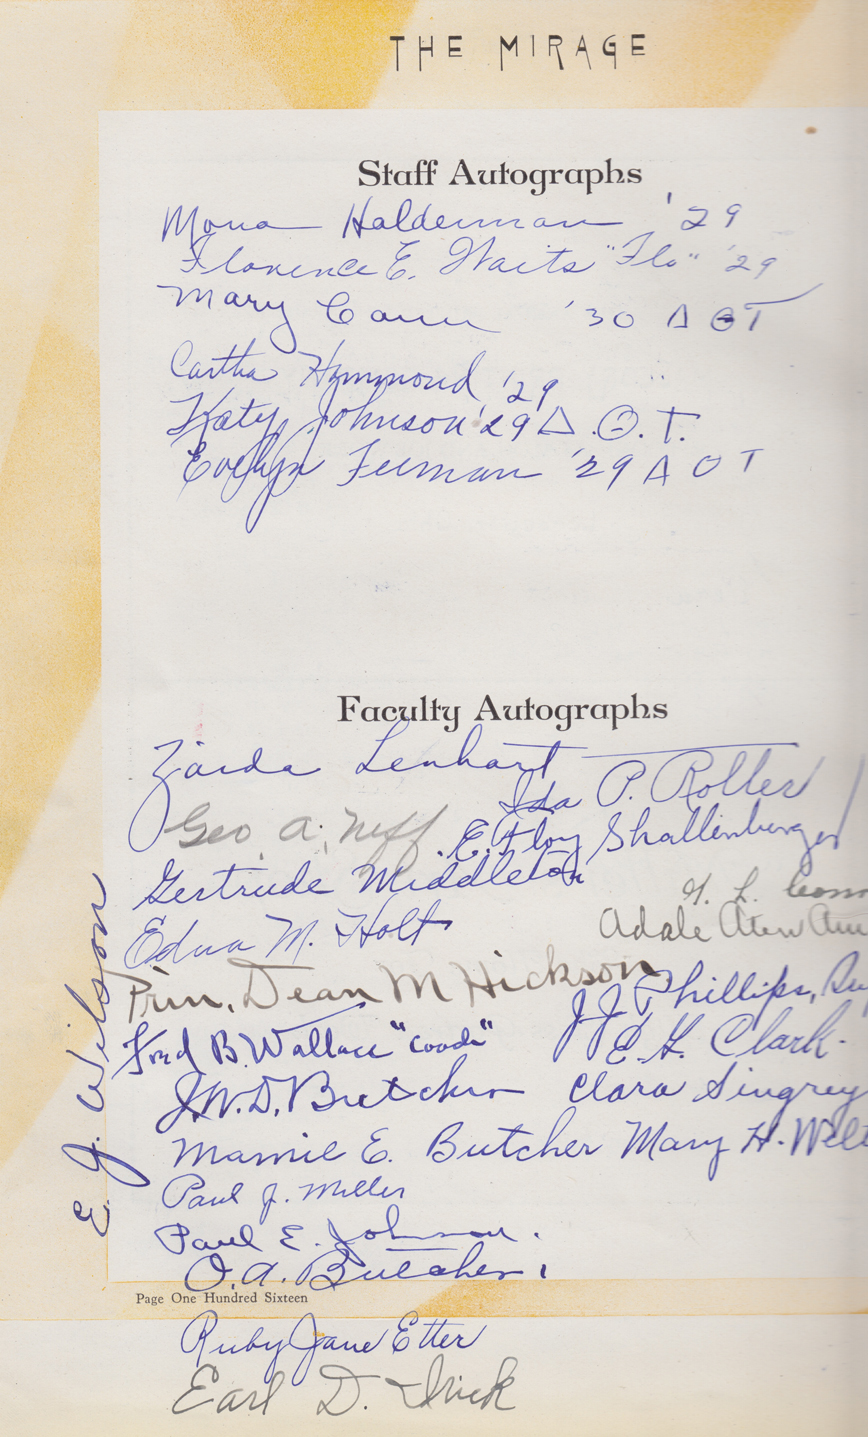 THE MIRAGE
Staff Autographs
Mona Halderman '29
Florence E. Waits "Flo" '29
Mary Cann '30 Δ Θ T
Cartha Hammond '29
Katy Johnson '29 Δ.Θ.T.
Evelyn Feeman '29 Δ O T
Faculty Autographs
Zaida Lenhart
Ida P. Rotter
Geo. A. Neff
E. Floy Shallenberger
Gertrude Middleton
G. L.
Edna M. Holt
Adale Aten
Prin. Dean M Hickson
J. J. Phillips, Su
Fred B. Wallace "Coach"
E. G. Clark.
J.W.D. Butcher
Clara Singrey
Mamie E. Butcher
Mary H. Welt
Paul J. Miller
Paul E. Johnson.
O. A. Butcher
E. J. Wilson
Page One Hundred Sixteen
Ruby Jane Etter
Earl D. Irick